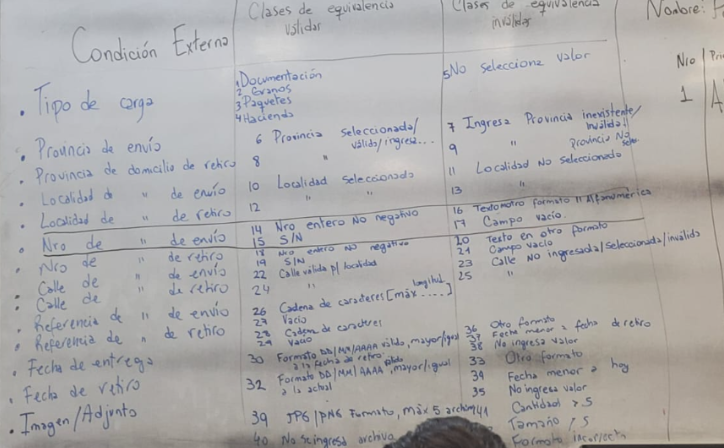 Condición Externa
Clases de equivalencia válidas
Clases de equivalencia inválidas
Nombre:
Nro
1
. Tipo de carga
1 Documentación
2 Granos
3 Paquetes
4 Hacienda
5 No Selecciona valor
. Provincia de envío
6 Provincia Seleccionada/ válida/ingresa...
7 Ingresa Provincia inexistente/ Inválida
. Provincia de domicilio de retiro
8 "
9 " Provincia No
. Localidad de " de envío
10 Localidad Seleccionada
11 Localidad No seleccionada
. Localidad de " de retiro
12 "
13 "
. Nro de " de envío
14 Nro entero No negativo
15 S/N
16 Texto/otro formato
17 Campo vacío.
. Nro de " de retiro
18 Nro entero No negativo
19 S/N
20 Texto en otro formato
21 Campo vacío
. Calle de " de envío
22 Calle válida p/ localidad
23 Calle No ingresada/Seleccionada/inválida
. Calle de " de retiro
24 "
25 "
. Referencia de " de envío
26 Cadena de caracteres [máx longitud ....]
27 Vacío
. Referencia de " de retiro
28 Cadena de caracteres
29 Vacío
. Fecha de entrega
30 Formato DD/MM/AAAA válido, mayor/igual a la fecha de retiro
36 Otro formato
37 Fecha menor a fecha de retiro
38 No ingresa valor
. Fecha de retiro
32 Formato DD/MM/AAAA válido mayor/igual a la actual
33 Otro formato
34 Fecha menor a hoy
35 No ingresa valor
. Imagen/Adjunto
39 JPG/PNG Formato, máx 5 archivos
40 No se ingresa archivo
41 Cantidad > 5
Tamaño > 5
Formato incorrecto